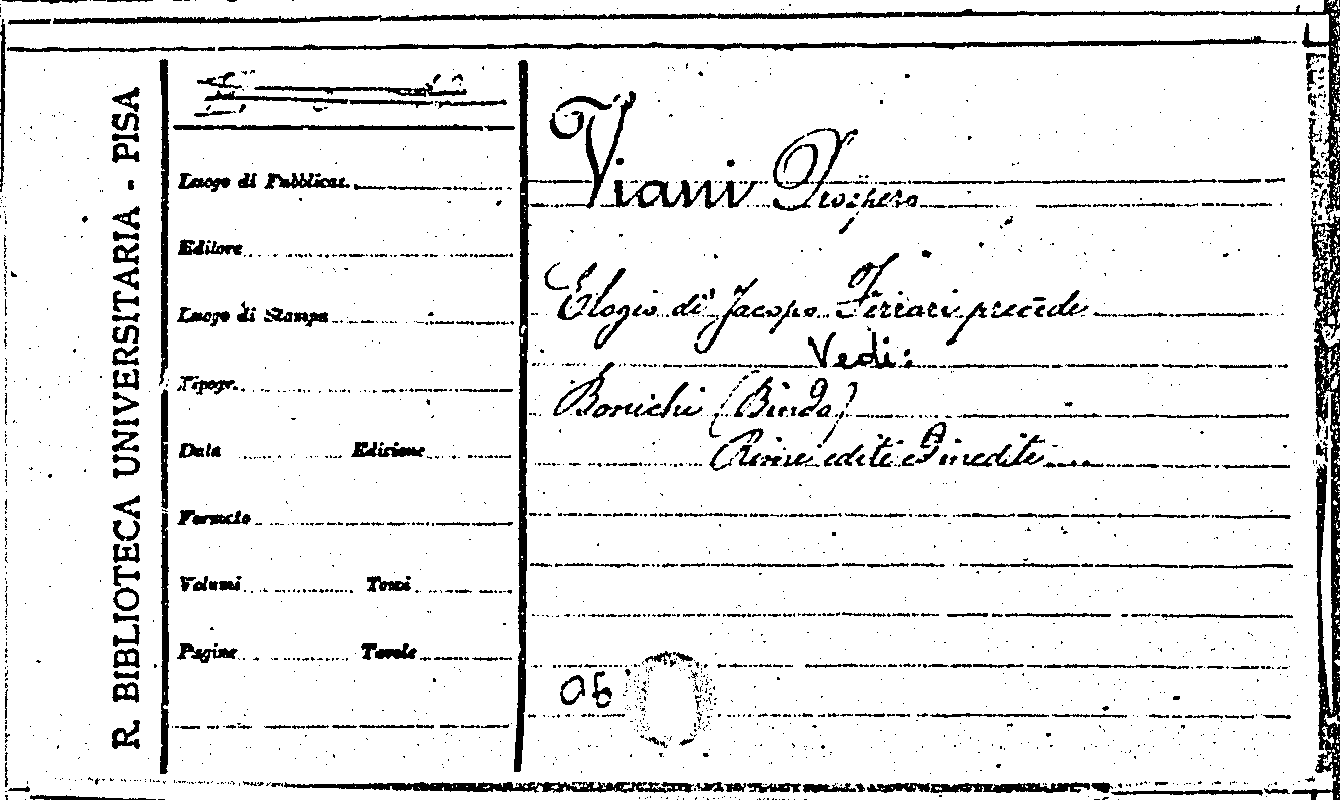 R. BIBLIOTECA UNIVERSITARIA - PISA
Luogo di Pubblicaz.
Editore
Luogo di Stampa
Tipogr.
Data Edizione
Formato
Volumi Tomi
Pagine Tavole
Viani Prospero
Elogio di Jacopo Ferrari precede
Vedi:
Bonichi (Bindo)
Rime edite e inedite